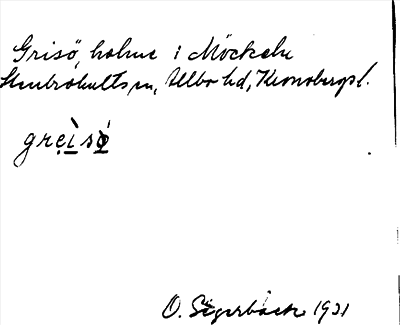 Grisö, holme i Möckeln
Stenbrohults sn, Allbo hd, Kronobergs l.
grẹ̀i̱sö́
O. Segerbäck 1921